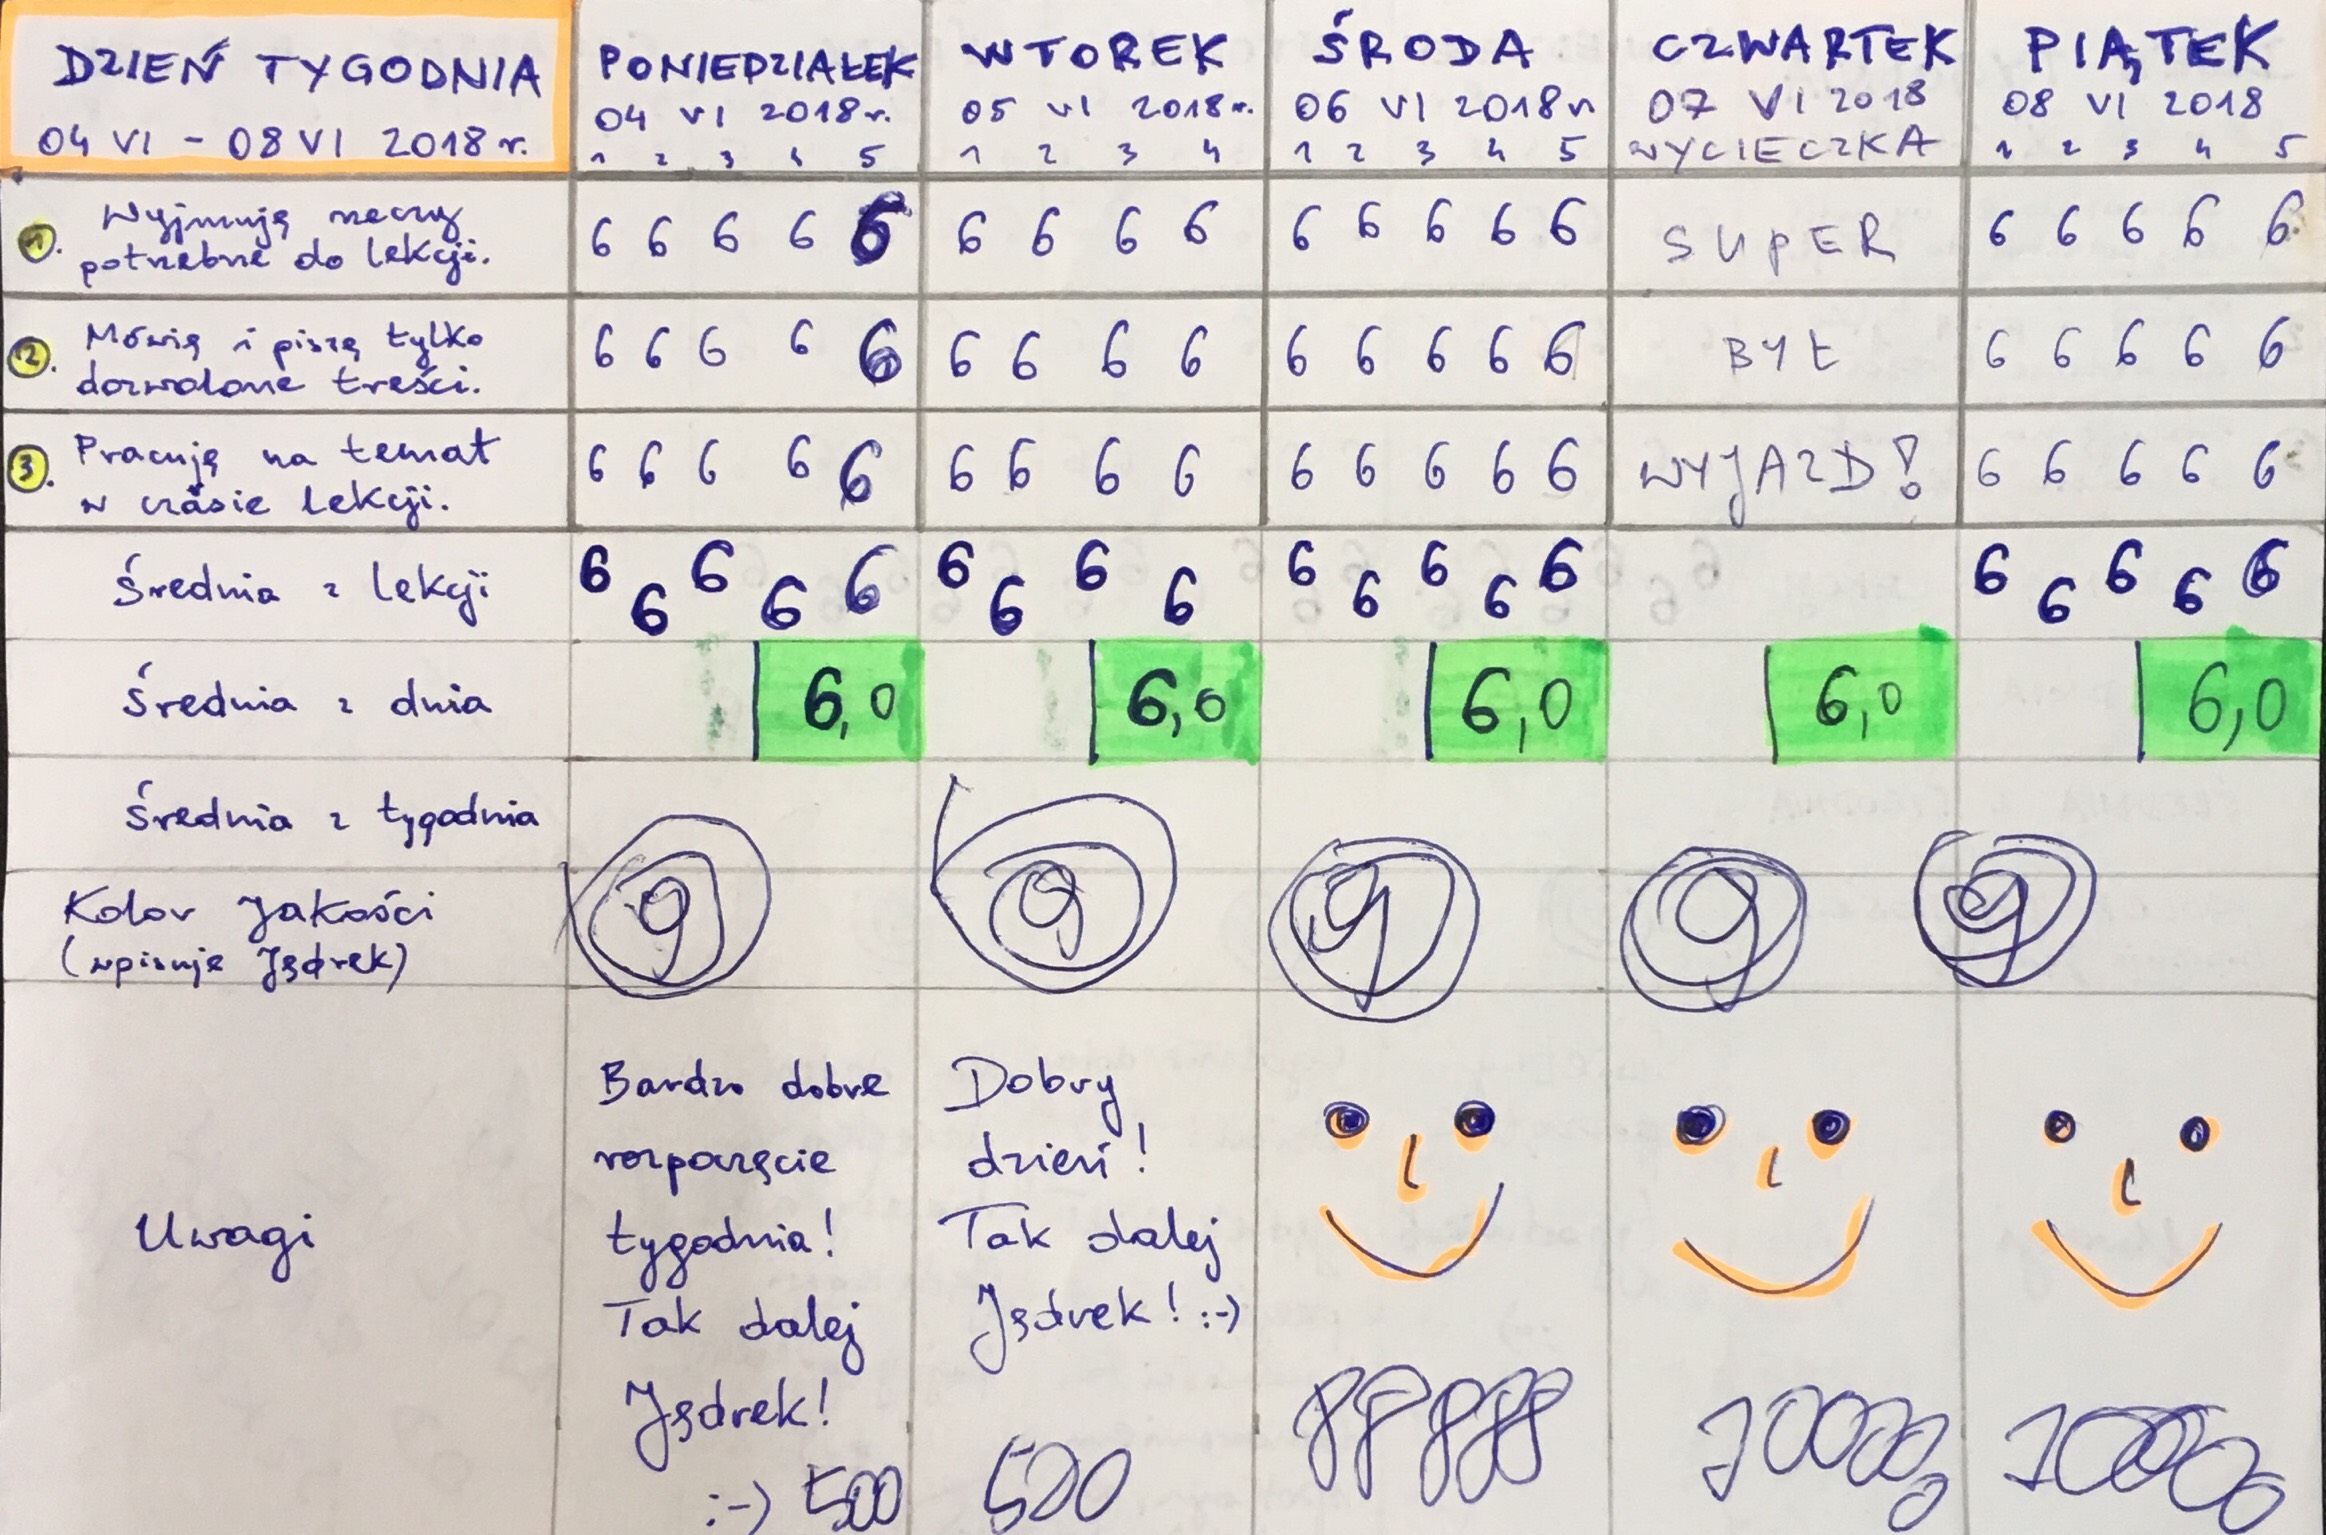 DZIEŃ TYGODNIA
04 VI - 08 VI 2018 r.
PONIEDZIAŁEK
04 VI 2018 r.
1 2 3 4 5
WTOREK
05 VI 2018 r.
1 2 3 4
ŚRODA
06 VI 2018 r
1 2 3 4 5
CZWARTEK
07 VI 2018
WYCIECZKA
PIĄTEK
08 VI 2018
1 2 3 4 5
1. Wyjmuję rzeczy
potrzebne do lekcji.
6 6 6 6 6
6 6 6 6
6 6 6 6 6
SUPER
6 6 6 6 6
2. Mówię i piszę tylko
dozwolone treści.
6 6 6 6 6
6 6 6 6
6 6 6 6 6
BYŁ
6 6 6 6 6
3. Pracuję na temat
w czasie lekcji.
6 6 6 6 6
6 6 6 6
6 6 6 6 6
WYJAZD!
6 6 6 6 6
Średnia z lekcji
6 6 6 6 6
6 6 6 6
6 6 6 6 6
6 6 6 6 6
Średnia z dnia
6,0
6,0
6,0
6,0
6,0
Średnia z tygodnia
Kolor Jakości
(wpisuje Jędrek)
9
9
9
9
9
Uwagi
Bardzo dobre
rozpoczęcie
tygodnia!
Tak dalej
Jędrek!
:-) 500
Dobry
dzień!
Tak dalej
Jędrek! :-)
500